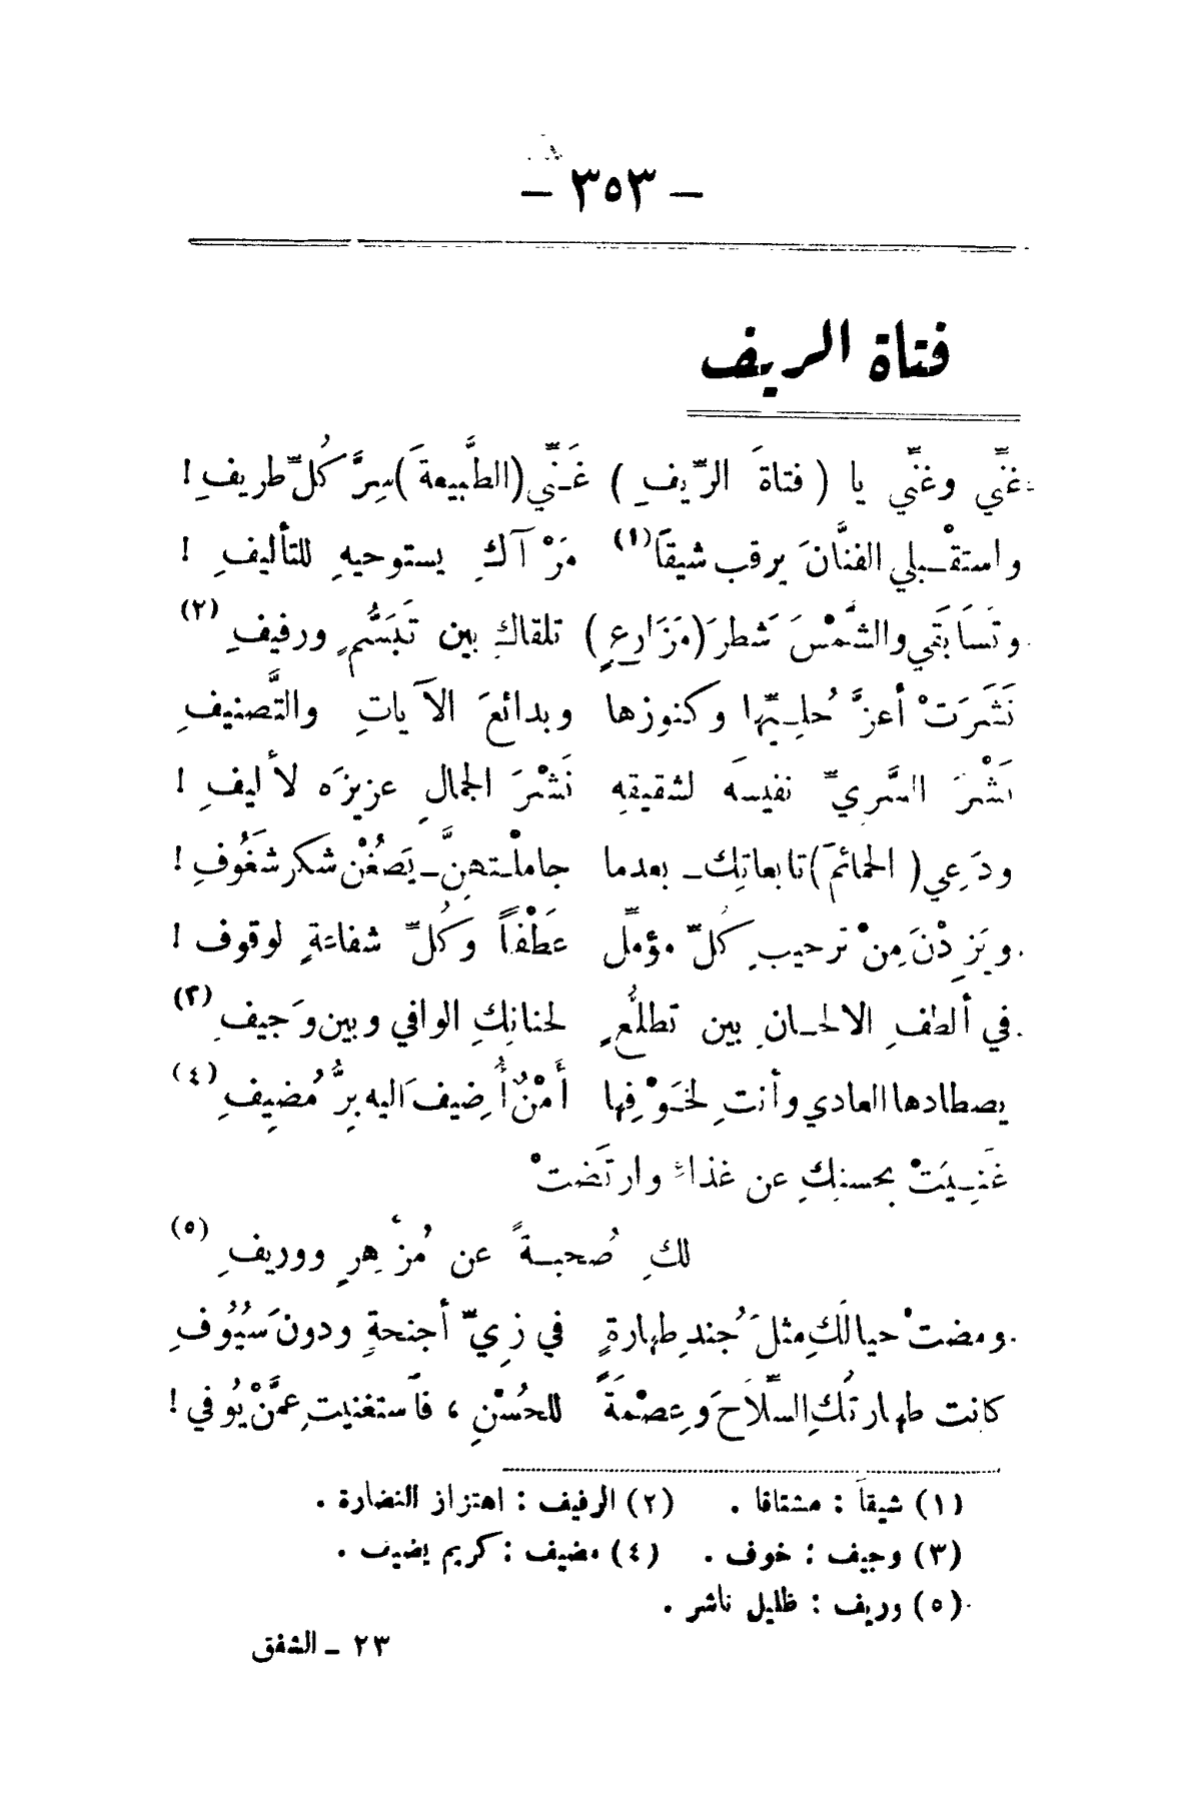 – ٣٥٣ –
فتاة الريف
غنِّي وغنِّي يا ( فتاةَ الرِّيفِ ) غَنِّي (الطَّبيعةَ) سِرَّ كُلِّ طريفِ !
واستقْبلي الفنَّانَ يرقب شيقاً (١) مَرْآكِ يستوحيهِ للتأليفِ !
وتَسَابَقي والشَّمْسَ شَطرَ (مَزَارِعٍ) تلقاكِ بين تَبَسُّمٍ ورفيفِ (٢)
نَشَرَتْ أعزَّ حُلِيِّها وكنوزها وبدائعَ الآياتِ والتَّصنيفِ
نَشْرَ السَّرِيِّ نفيسَه لشقيقهِ نَشْرَ الجمالِ عزيزَه لأليفِ !
ودَعِي ( الحمائمَ ) تابعاتِك ـ بعدما جاملْتهنَّ ـ يَصُغْن شكر شَغُوفِ !
ويَزِدْنَ مِنْ ترحيبِ كُلِّ مؤمِّل عَطْفاً وكُلِّ شفاعةٍ لوقوف !
في ألطفِ الالحانِ بين تطلُّعٍ لحنانِكِ الوافي وبين وَجيفِ (٣)
يصطادها العادي وأنتِ لخَوْفِها أَمْنٌ أُضِيفَ اليه بِرُّ مُضِيفِ (٤)
غَنِيَتْ بحسنِكِ عن غذاءٍ وارتَضتْ
لكِ صُحبةً عن مُزْهِرٍ ووريفِ (٥)
ومضتْ حيالَكِ مثلَ جُندِ طهارةٍ في زِيِّ أجنحةٍ ودون سُيُوفِ
كانت طهارتُكِ السِّلاحَ وعِصْمَةً للحُسْنِ ، فاستغنيتِ عمَّنْ يُوفي !
(١) شيقاً : مشتاقا . (٢) الرفيف : اهتزاز النضارة .
(٣) وجيف : خوف . (٤) مضيف : كريم يضيف .
(٥) وريف : ظليل ناشر .
٢٣ ــ الشفق